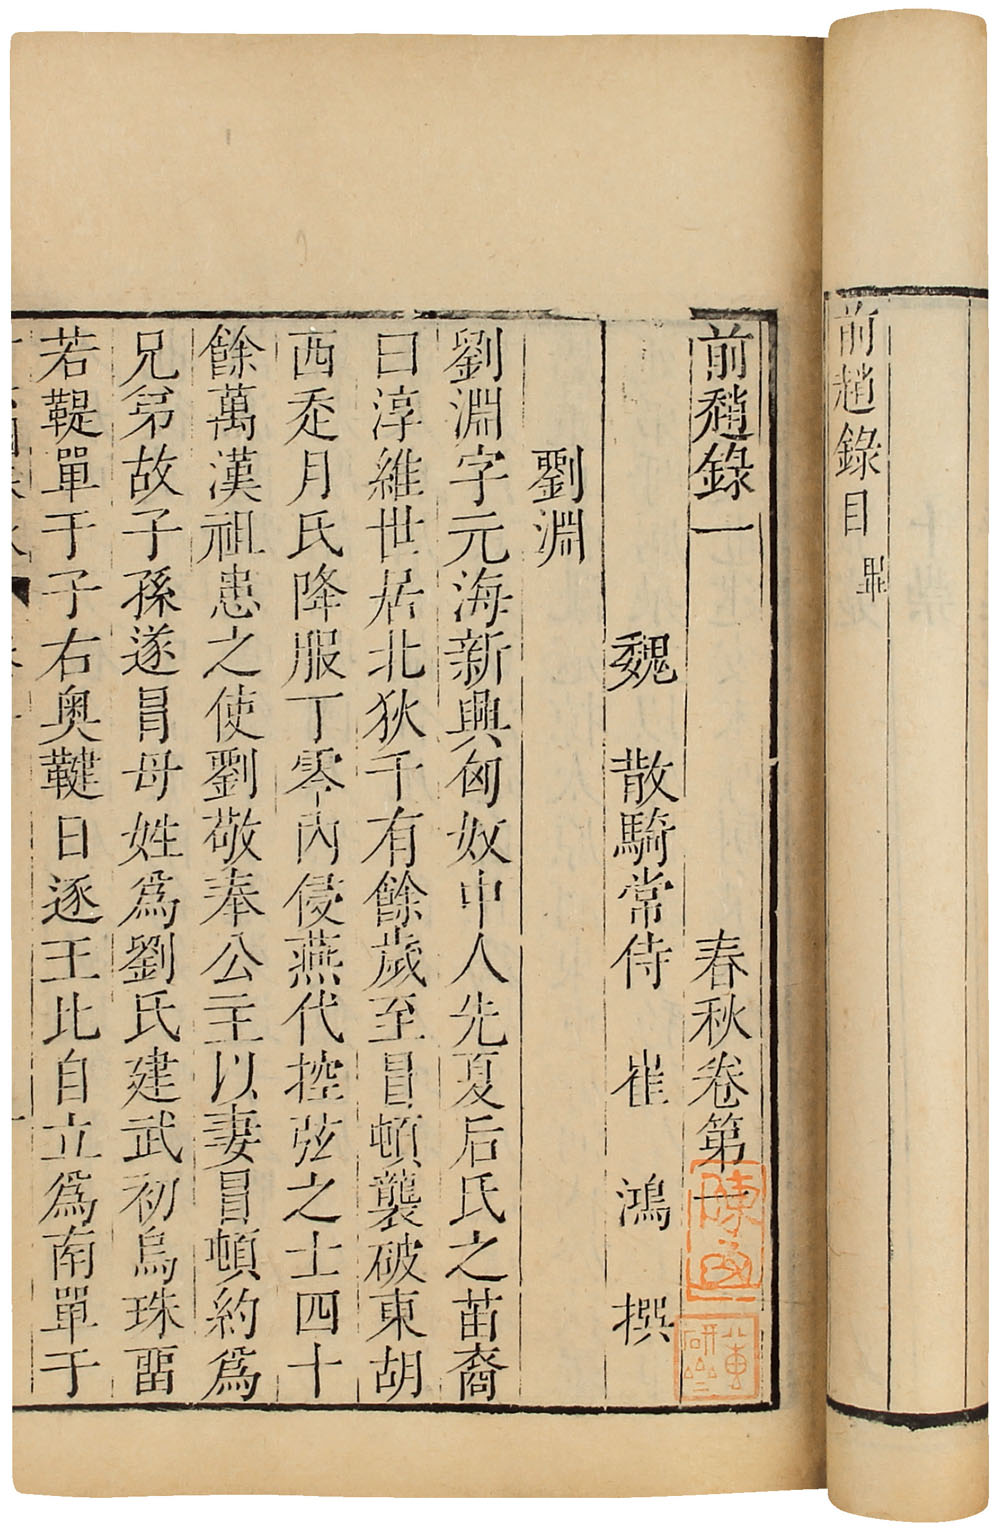 前趙錄目畢
前趙錄一 春秋卷第一
魏 散騎常侍 崔 鴻 撰
劉淵
劉淵字元海新興匈奴中人先夏后氏之苗裔
曰淳維世居北狄千有餘歲至冒頓襲破東胡
西走月氏降服丁零內侵燕代控弦之士四十
餘萬漢祖患之使劉敬奉公主以妻冒頓約為
兄弟故子孫遂冒母姓為劉氏建武初烏珠留
若鞮單于子右奧鞬日逐王比自立為南單于